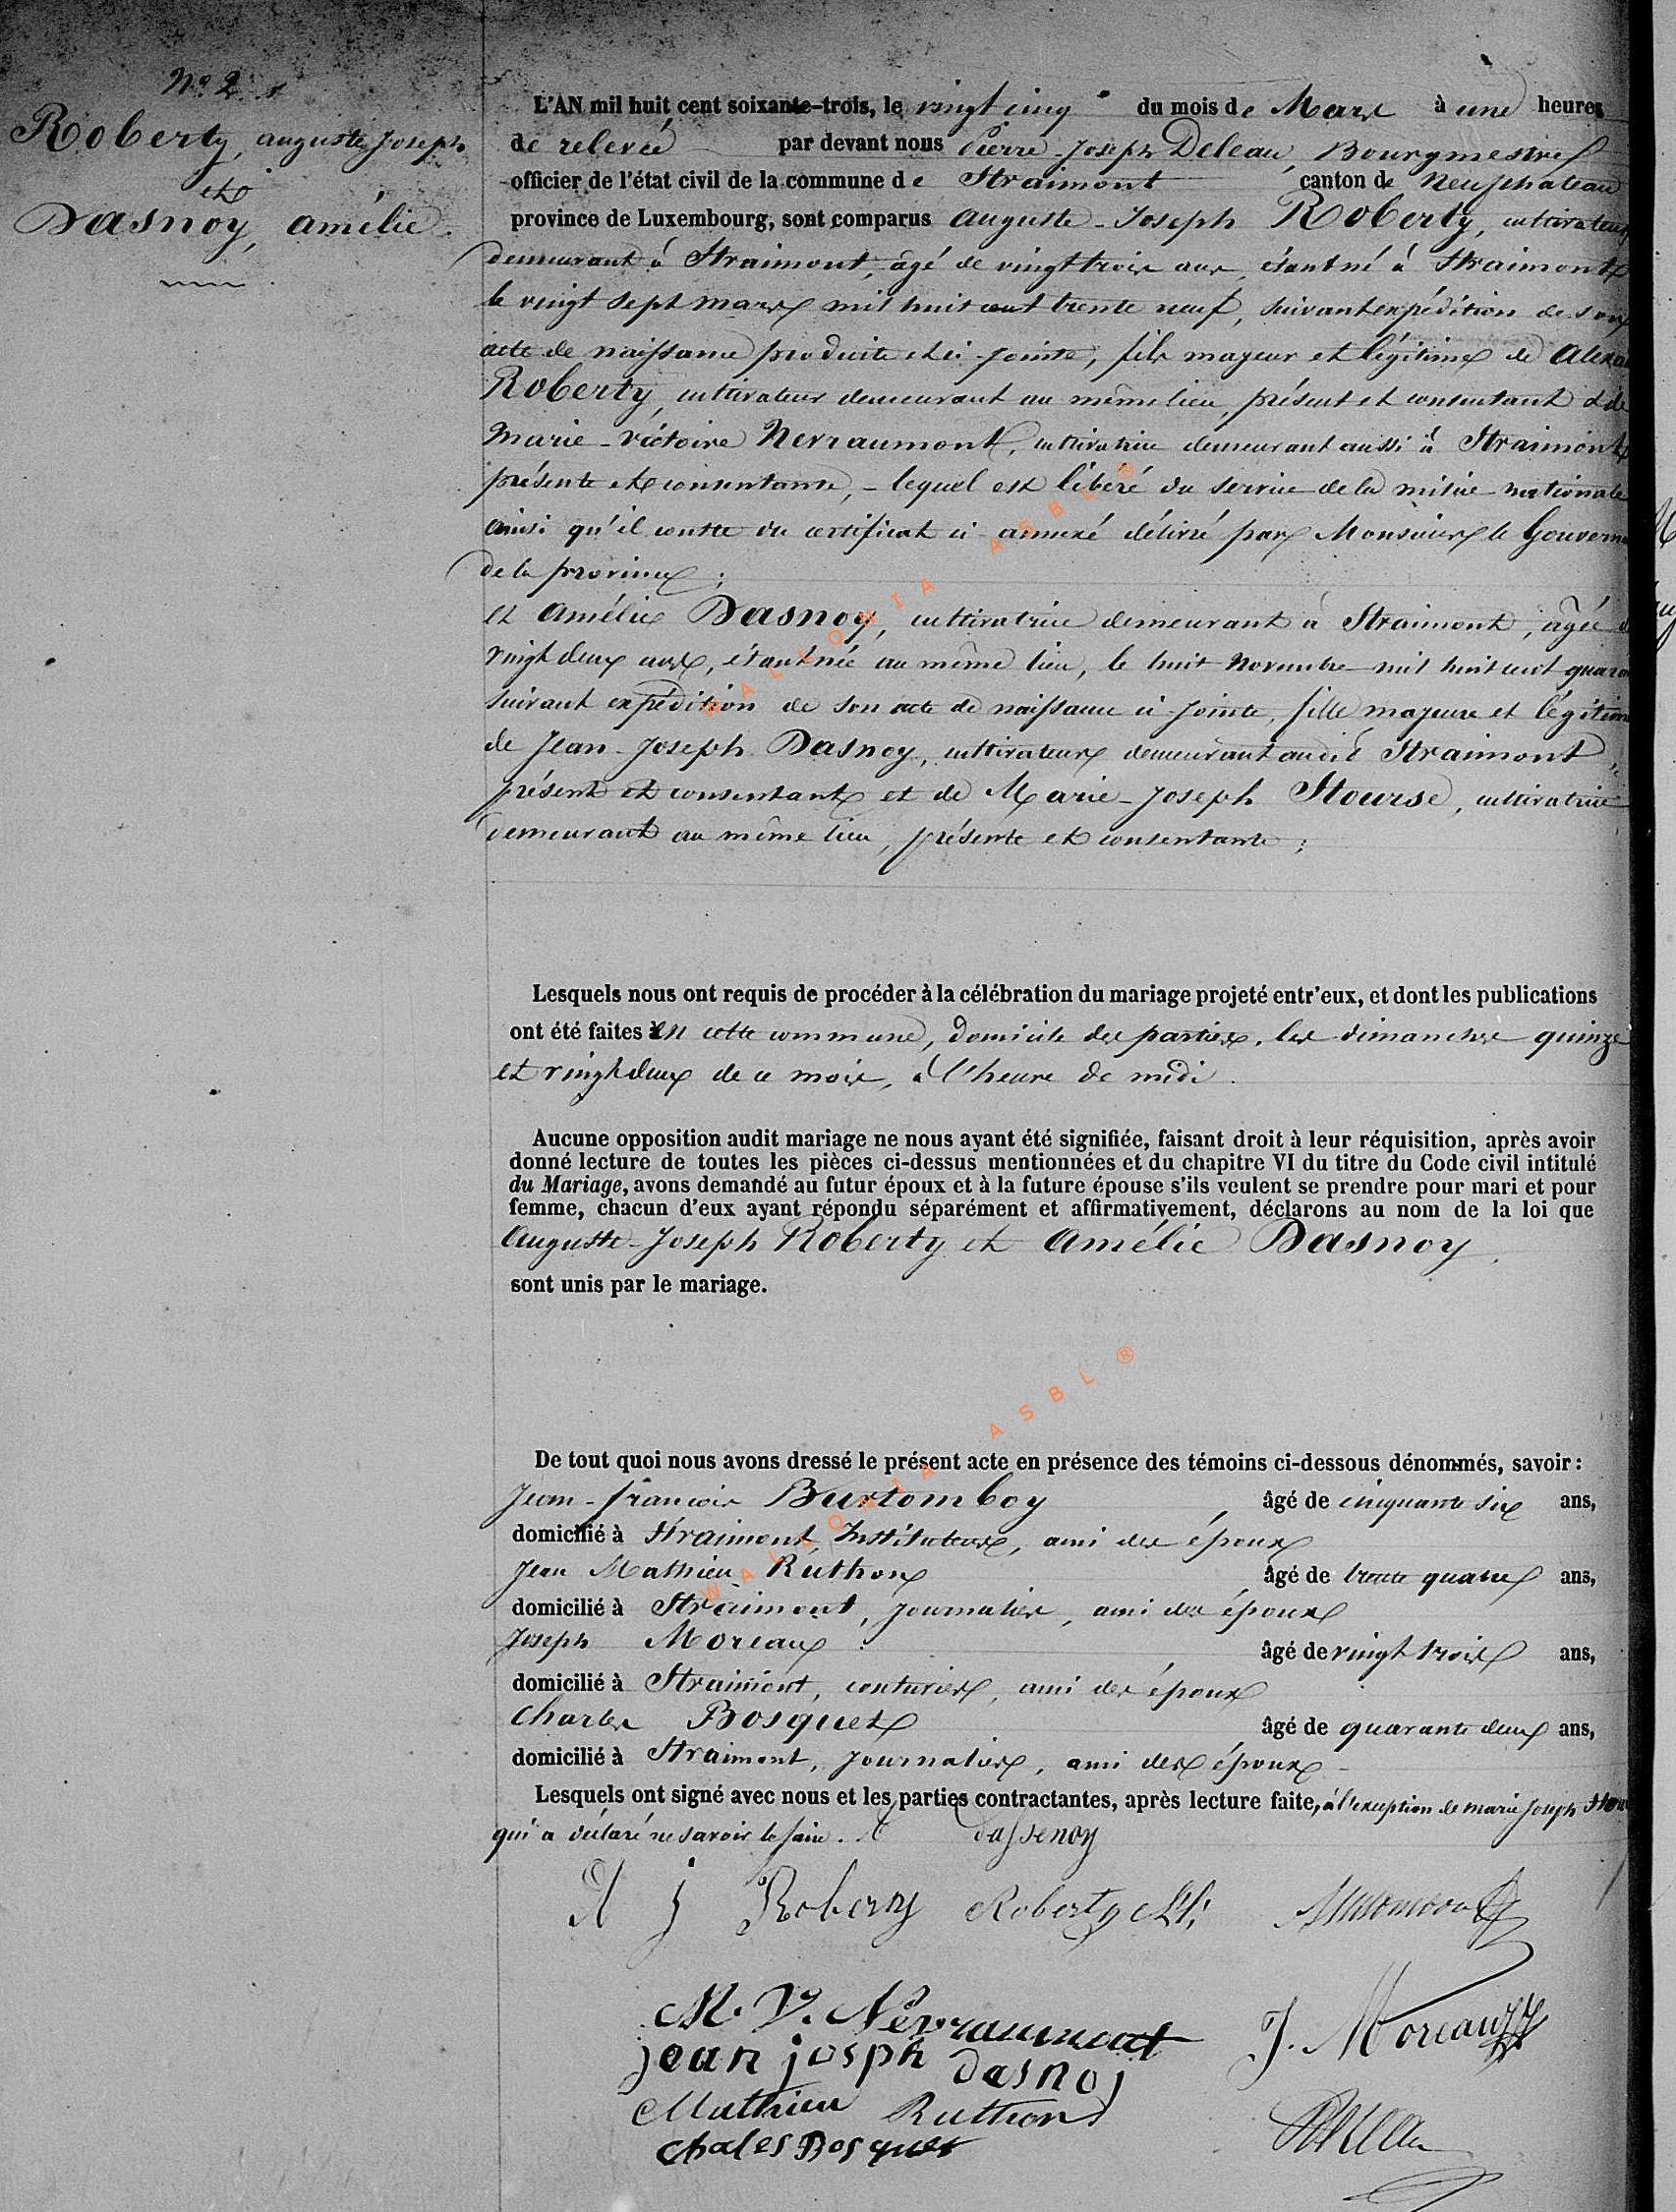 N° 2
Roberty, auguste Joseph
et
Dasnoy, amélie.
L'AN mil huit cent soixante-trois, le vingt cinq du mois de Mars à une heures
de relevée par devant nous Pierre-Joseph Deleau, Bourgmestre
officier de l'état civil de la commune de Straimont canton de Neufchateau
province de Luxembourg, sont comparus auguste-Joseph Roberty, cultivateur
demeurant à Straimont, âgé de vingt trois ans, étant né à Straimont
le vingt sept mars mil huit cent trente neuf, suivant expédition de son
acte de naissance produite et ci-jointe, fils majeur et légitime de Alexa
Roberty, cultivateur demeurant au même lieu, présent et consentant & de
Marie-Victoire Nevraumont, cultivatrice demeurant aussi à Straimont
présente et consentante, - lequel est libéré du service de la milice nationale
ainsi qu'il conste du certificat ci-annexé délivré par Monsieur le Gouvern
de la province;
et Amélie Dasnoy, cultivatrice demeurant à Straimont, âgée d
vingt deux ans, étant née au même lieu, le huit Novembre mil huit cent quara
suivant expédition de son acte de naissance ci-jointe, fille majeure et légitim
de Jean-Joseph Dasnoy, cultivateur demeurant audit Straimont,
présent et consentant et de Marie-Joseph Stourse, cultivatrice
demeurant au même lieu, présente et consentante;
Lesquels nous ont requis de procéder à la célébration du mariage projeté entr'eux, et dont les publications
ont été faites en cette commune, domicile des parties, les dimanches quinze
et vingt deux de ce mois, à l'heure de midi.
Aucune opposition audit mariage ne nous ayant été signifiée, faisant droit à leur réquisition, après avoir
donné lecture de toutes les pièces ci-dessus mentionnées et du chapitre VI du titre du Code civil intitulé
du Mariage, avons demandé au futur époux et à la future épouse s'ils veulent se prendre pour mari et pour
femme, chacun d'eux ayant répondu séparément et affirmativement, déclarons au nom de la loi que
Auguste-Joseph Roberty et Amélie Dasnoy,
sont unis par le mariage.
De tout quoi nous avons dressé le présent acte en présence des témoins ci-dessous dénommés, savoir:
Jean-françois Burtomboy âgé de cinquante six ans,
domicilié à Straimont, Instituteur, ami des époux
Jean Mathieu Ruthon âgé de trente quatre ans,
domicilié à Straimont, journalier, ami des époux
Joseph Moreau âgé de vingt trois ans,
domicilié à Straimont, couturier, ami des époux
Charles Bosquet âgé de quarante deux ans,
domicilié à Straimont, journalier, ami des époux
Lesquels ont signé avec nous et les parties contractantes, après lecture faite, à l'exception de marie joseph Stour
qui a déclaré ne savoir le faire. A dassenoy
A J Roberty Roberty
M. V. Nevraumont J. Moreau
jean josph dasnoj
Mathieu Ruthon
Chales Bosquet
WALLONIA ASBL ®
WALLONIA ASBL ®